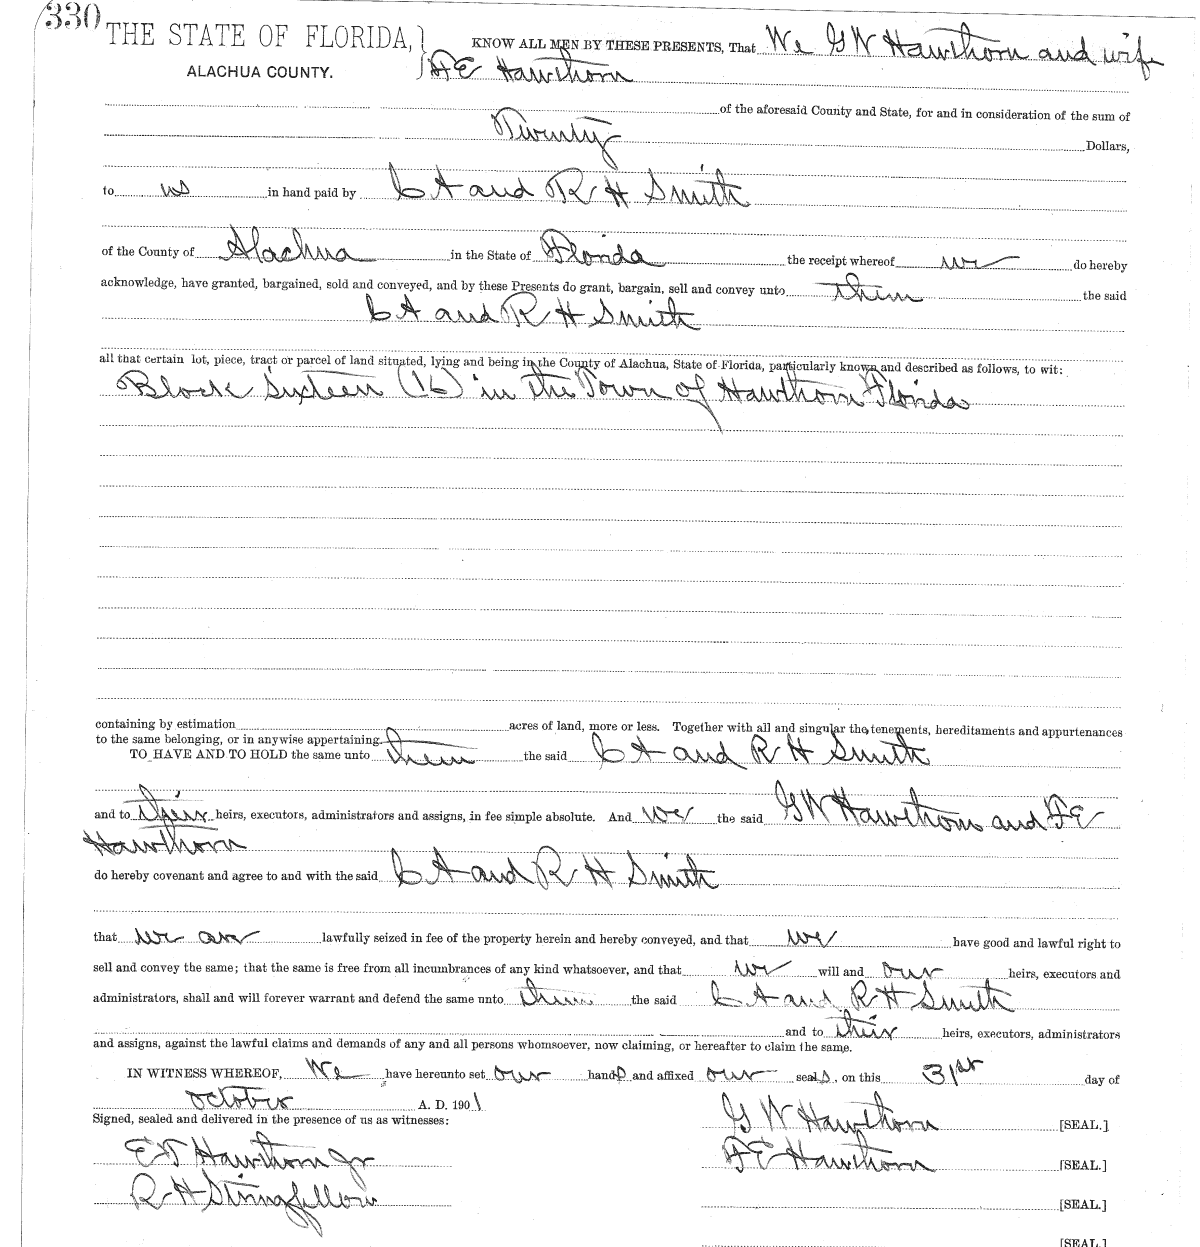 330
THE STATE OF FLORIDA,} KNOW ALL MEN BY THESE PRESENTS, That We G W Hawthorn and wife
ALACHUA COUNTY. } F E Hawthorn
of the aforesaid County and State, for and in consideration of the sum of
Twenty Dollars,
to us in hand paid by C A and R H Smith
of the County of Alachua in the State of Florida the receipt whereof we do hereby
acknowledge, have granted, bargained, sold and conveyed, and by these Presents do grant, bargain, sell and convey unto them the said
C A and R H Smith
all that certain lot, piece, tract or parcel of land situated, lying and being in the County of Alachua, State of Florida, particularly known and described as follows, to wit:
Block Sixteen (16) in the Town of Hawthorn Florida
containing by estimation acres of land, more or less. Together with all and singular the tenements, hereditaments and appurtenances
to the same belonging, or in anywise appertaining.
TO HAVE AND TO HOLD the same unto them the said C A and R H Smith
and to their heirs, executors, administrators and assigns, in fee simple absolute. And we the said G W Hawthorn and F E
Hawthorn
do hereby covenant and agree to and with the said C A and R H Smith
that we are lawfully seized in fee of the property herein and hereby conveyed, and that we have good and lawful right to
sell and convey the same; that the same is free from all incumbrances of any kind whatsoever, and that we will and our heirs, executors and
administrators, shall and will forever warrant and defend the same unto them the said C A and R H Smith
and to their heirs, executors, administrators
and assigns, against the lawful claims and demands of any and all persons whomsoever, now claiming, or hereafter to claim the same.
IN WITNESS WHEREOF, We have hereunto set our hands and affixed our seals, on this 31st day of
October A. D. 1901
Signed, sealed and delivered in the presence of us as witnesses: G W Hawthorn [SEAL.]
E S Hawthorn Jr F E Hawthorn [SEAL.]
R H Stringfellow [SEAL.]
[SEAL.]